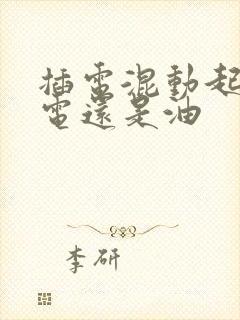 插電混動起
電還是油
李研